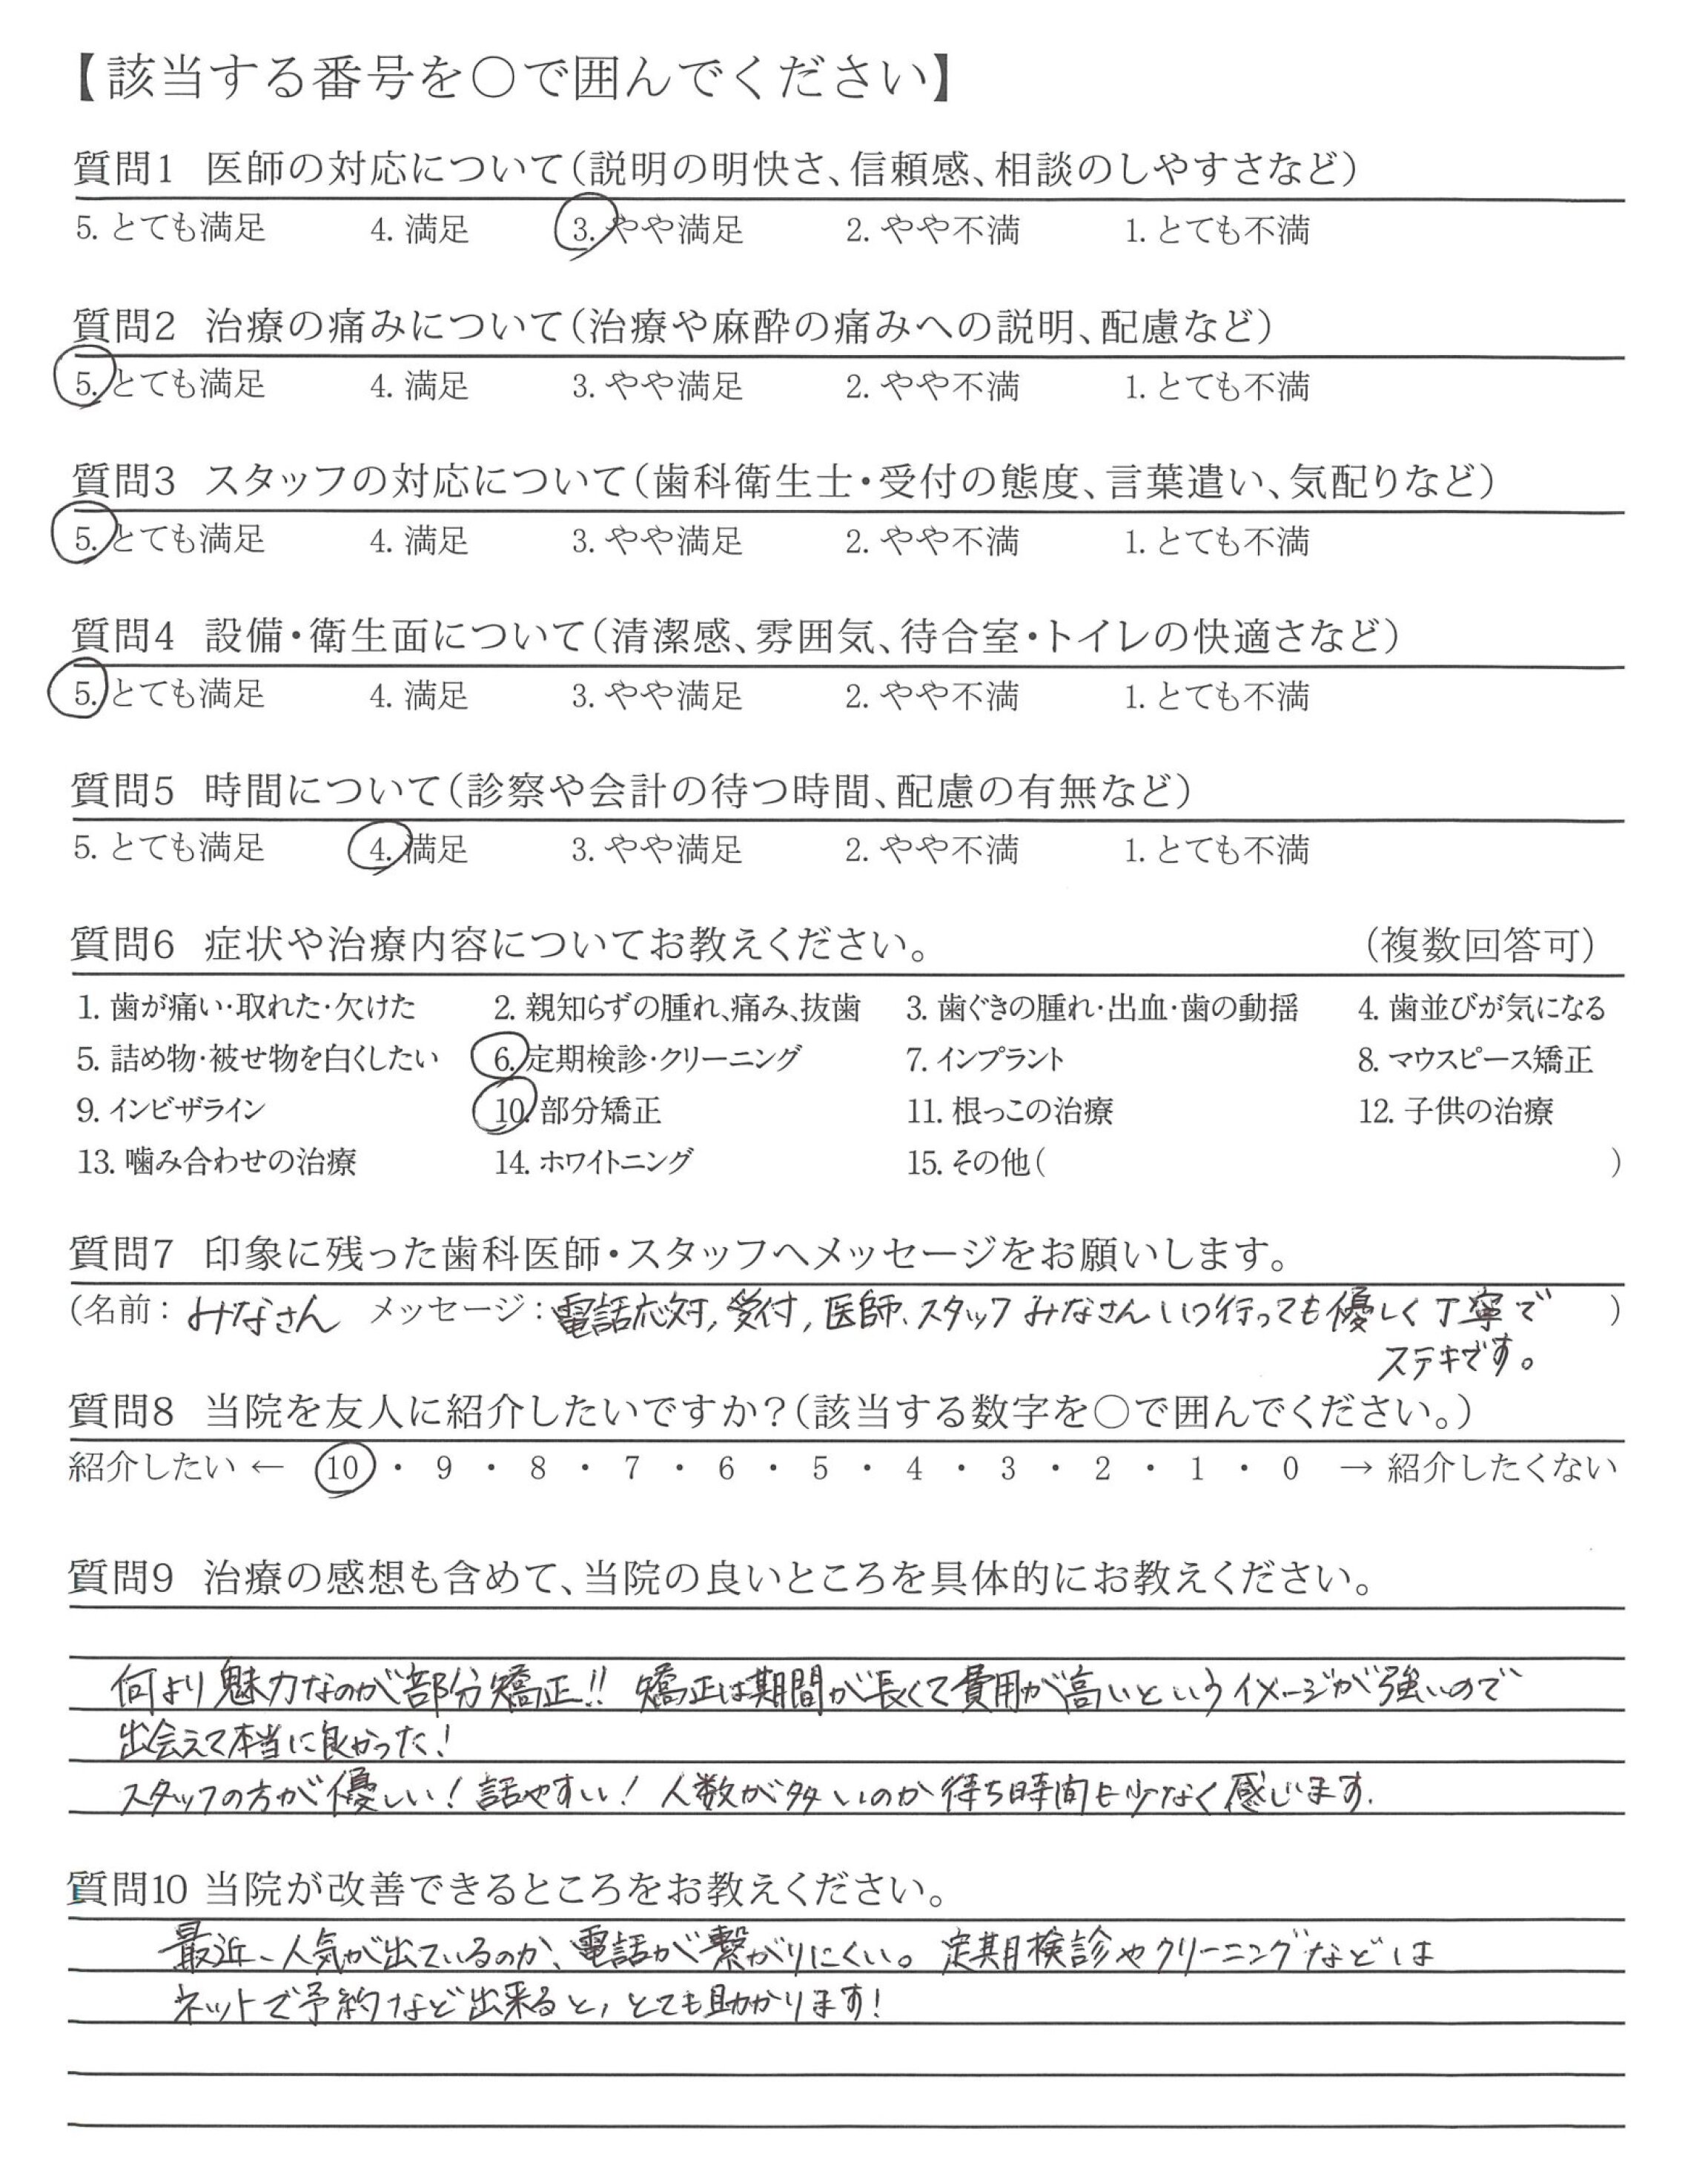 【該当する番号を〇で囲んでください】
質問1 医師の対応について(説明の明快さ、信頼感、相談のしやすさなど)
5. とても満足 4. 満足 3. やや満足 2. やや不満 1. とても不満
質問2 治療の痛みについて(治療や麻酔の痛みへの説明、配慮など)
5. とても満足 4. 満足 3. やや満足 2. やや不満 1. とても不満
質問3 スタッフの対応について(歯科衛生士・受付の態度、言葉遣い、気配りなど)
5. とても満足 4. 満足 3. やや満足 2. やや不満 1. とても不満
質問4 設備・衛生面について(清潔感、雰囲気、待合室・トイレの快適さなど)
5. とても満足 4. 満足 3. やや満足 2. やや不満 1. とても不満
質問5 時間について(診察や会計の待つ時間、配慮の有無など)
5. とても満足 4. 満足 3. やや満足 2. やや不満 1. とても不満
質問6 症状や治療内容についてお教えください。 (複数回答可)
1. 歯が痛い・取れた・欠けた 2. 親知らずの腫れ、痛み、抜歯 3. 歯ぐきの腫れ・出血・歯の動揺 4. 歯並びが気になる
5. 詰め物・被せ物を白くしたい 6. 定期検診・クリーニング 7. インプラント 8. マウスピース矯正
9. インビザライン 10. 部分矯正 11. 根っこの治療 12. 子供の治療
13. 噛み合わせの治療 14. ホワイトニング 15. その他( )
質問7 印象に残った歯科医師・スタッフへメッセージをお願いします。
(名前: みなさん メッセージ: 電話応対, 受付, 医師、スタッフ みなさん いつ行っても優しく丁寧で )
ステキです。
質問8 当院を友人に紹介したいですか?(該当する数字を〇で囲んでください。)
紹介したい ← 10 ・ 9 ・ 8 ・ 7 ・ 6 ・ 5 ・ 4 ・ 3 ・ 2 ・ 1 ・ 0 → 紹介したくない
質問9 治療の感想も含めて、当院の良いところを具体的にお教えください。
何より魅力なのが部分矯正!! 矯正は期間が長くて費用が高いというイメージが強いので
出会えて本当に良かった!
スタッフの方が優しい! 話やすい! 人数が多いのか待ち時間も少なく感じます.
質問10 当院が改善できるところをお教えください。
最近、人気が出ているのか、電話が繋がりにくい。定期検診やクリーニングなどは
ネットで予約など出来ると, とても助かります!